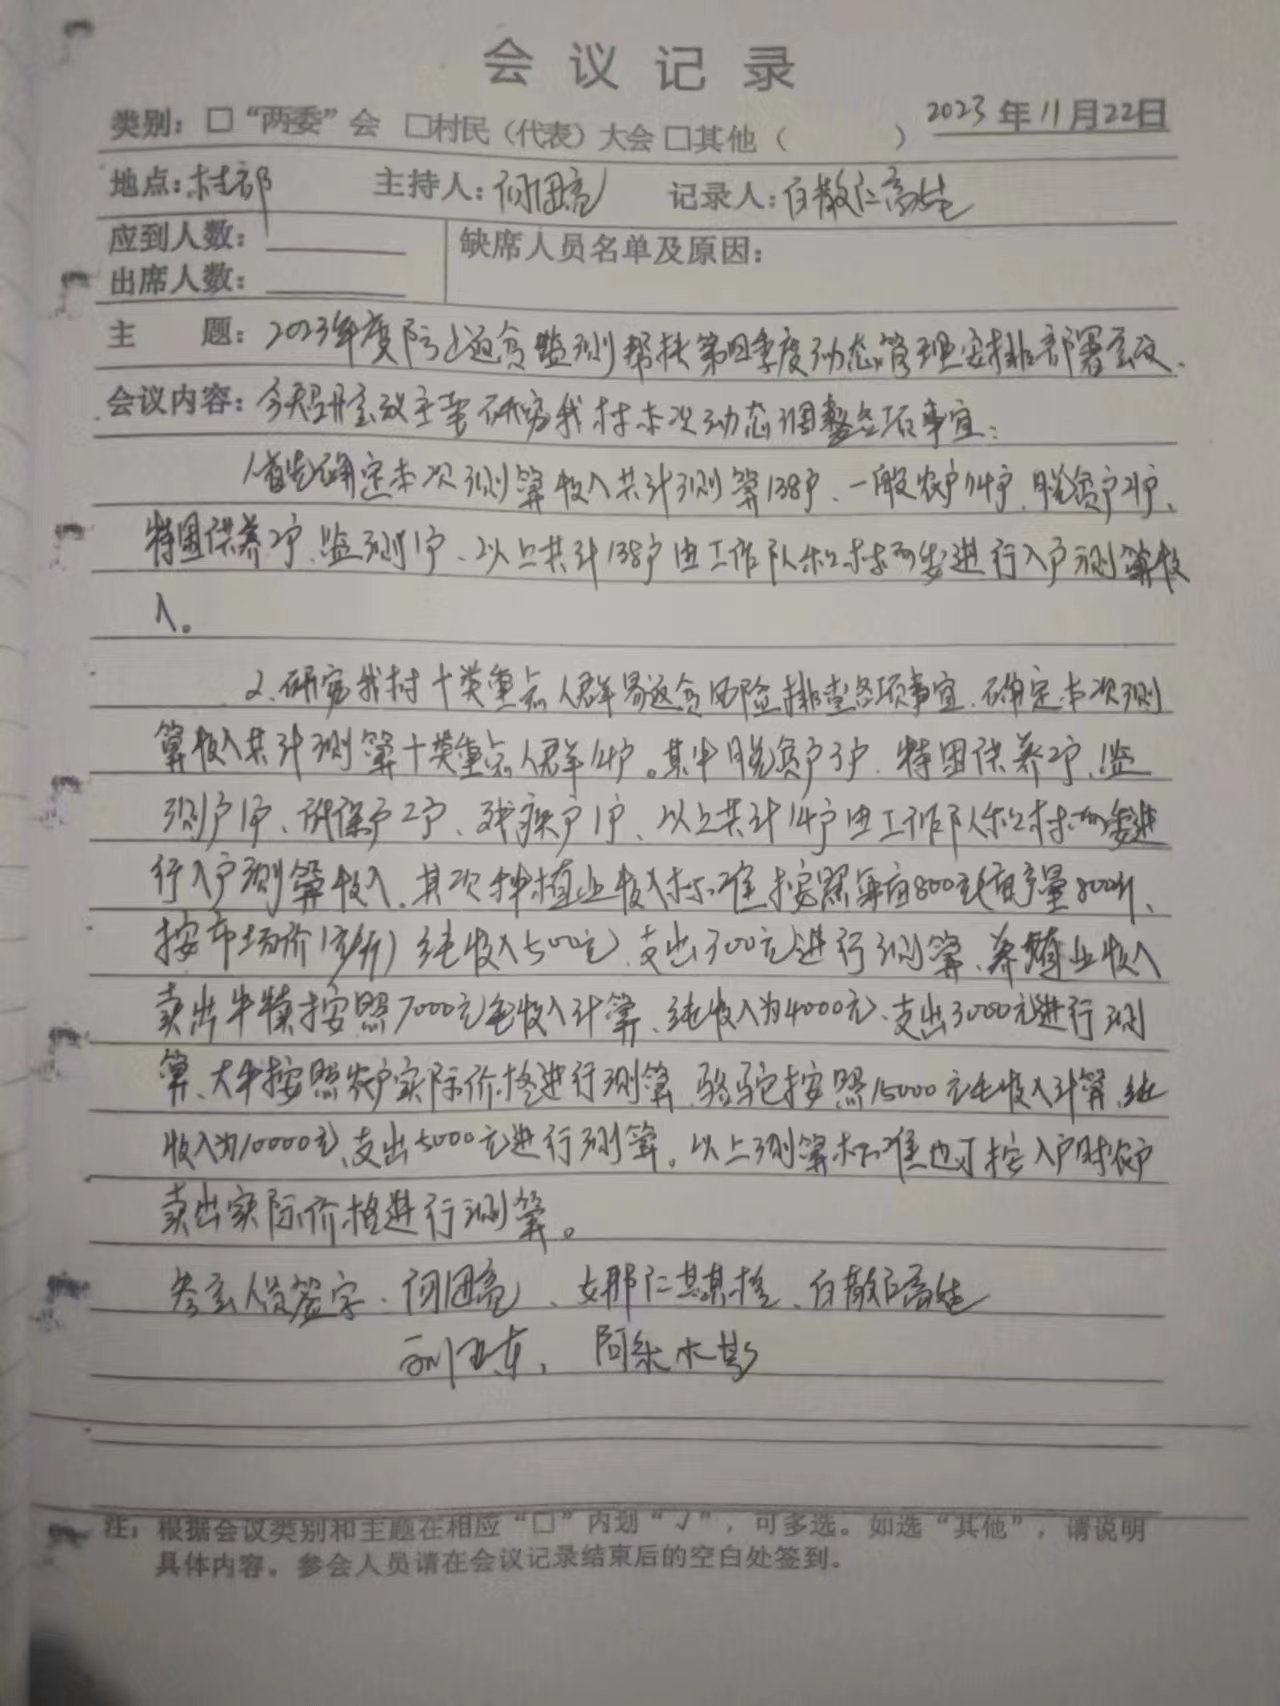 会议记录
类别：□“两委”会 □村民（代表）大会 □其他（ ） 2023年11月22日
地点：村部 主持人： 记录人：白散仁高娃
应到人数：
缺席人员名单及原因：
出席人数：
主 题：2023年度防止返贫监测帮扶第四季度动态管理安排部署会议.
会议内容：今天召开会议主要研究我村本次动态调整各项事宜：
1.首先确定本次测算收入共计测算138户、一般农户114户、脱贫户21户、
特困供养2户、监测户1户、以上共计138户由工作队和村两委进行入户测算收
入。
2.研究我村十类重点人群易返贫风险排查各项事宜、确定本次测
算收入共计测算十类重点人群14户。其中脱贫户3户、特困供养2户、监
测户1户、低保户2户、残疾户1户、以上共计14户由工作队和村两委进
行入户测算收入、其次种植业收入标准按照每亩800元(亩产量800斤、
按市场价1元/斤）纯收入500元、支出300元进行测算、养殖业收入
卖出牛犊按照7000元毛收入计算、纯收入为4000元、支出3000元进行测
算、大牛按照农户实际价格进行测算、骆驼按照15000元毛收入计算、纯
收入为10000元、支出5000元进行测算。以上测算标准也可按入户时农户
卖出实际价格进行测算。
参会人员签字： 、 、白散仁高娃
、阿
注：根据会议类别和主题在相应“□”内划“√”，可多选。如选“其他”，请说明
具体内容。参会人员请在会议记录结束后的空白处签到。